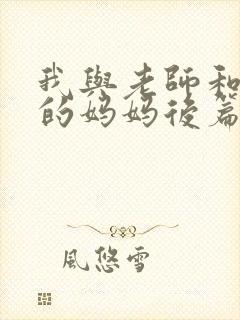 我與老師和
的妈妈後篇
風悠雪